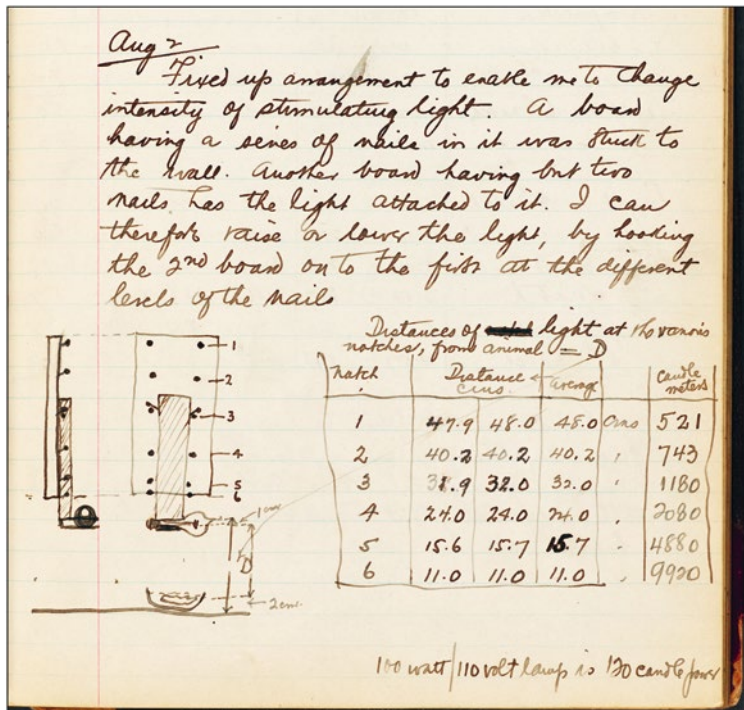 Aug 2
Fixed up arrangement to enable me to change
intensity of stimulating light. A board
having a series of nails in it was stuck to
the wall. Another board having but two
nails has the light attached to it. I can
therefore raise or lower the light, by hooking
the 2nd board on to the first at the different
levels of the nails
Distances of light at the various
notches, from animal = D
Notch Distance cms. average candle meters
1 47.9 48.0 48.0 cms 521
2 40.2 40.2 40.2 " 743
3 31.9 32.0 32.0 " 1180
4 24.0 24.0 24.0 " 2080
5 15.6 15.7 15.7 " 4880
6 11.0 11.0 11.0 " 9920
1
2
3
4
5
6
1 cm
D
2 cm.
100 watt/110 volt lamp is 120 candle power